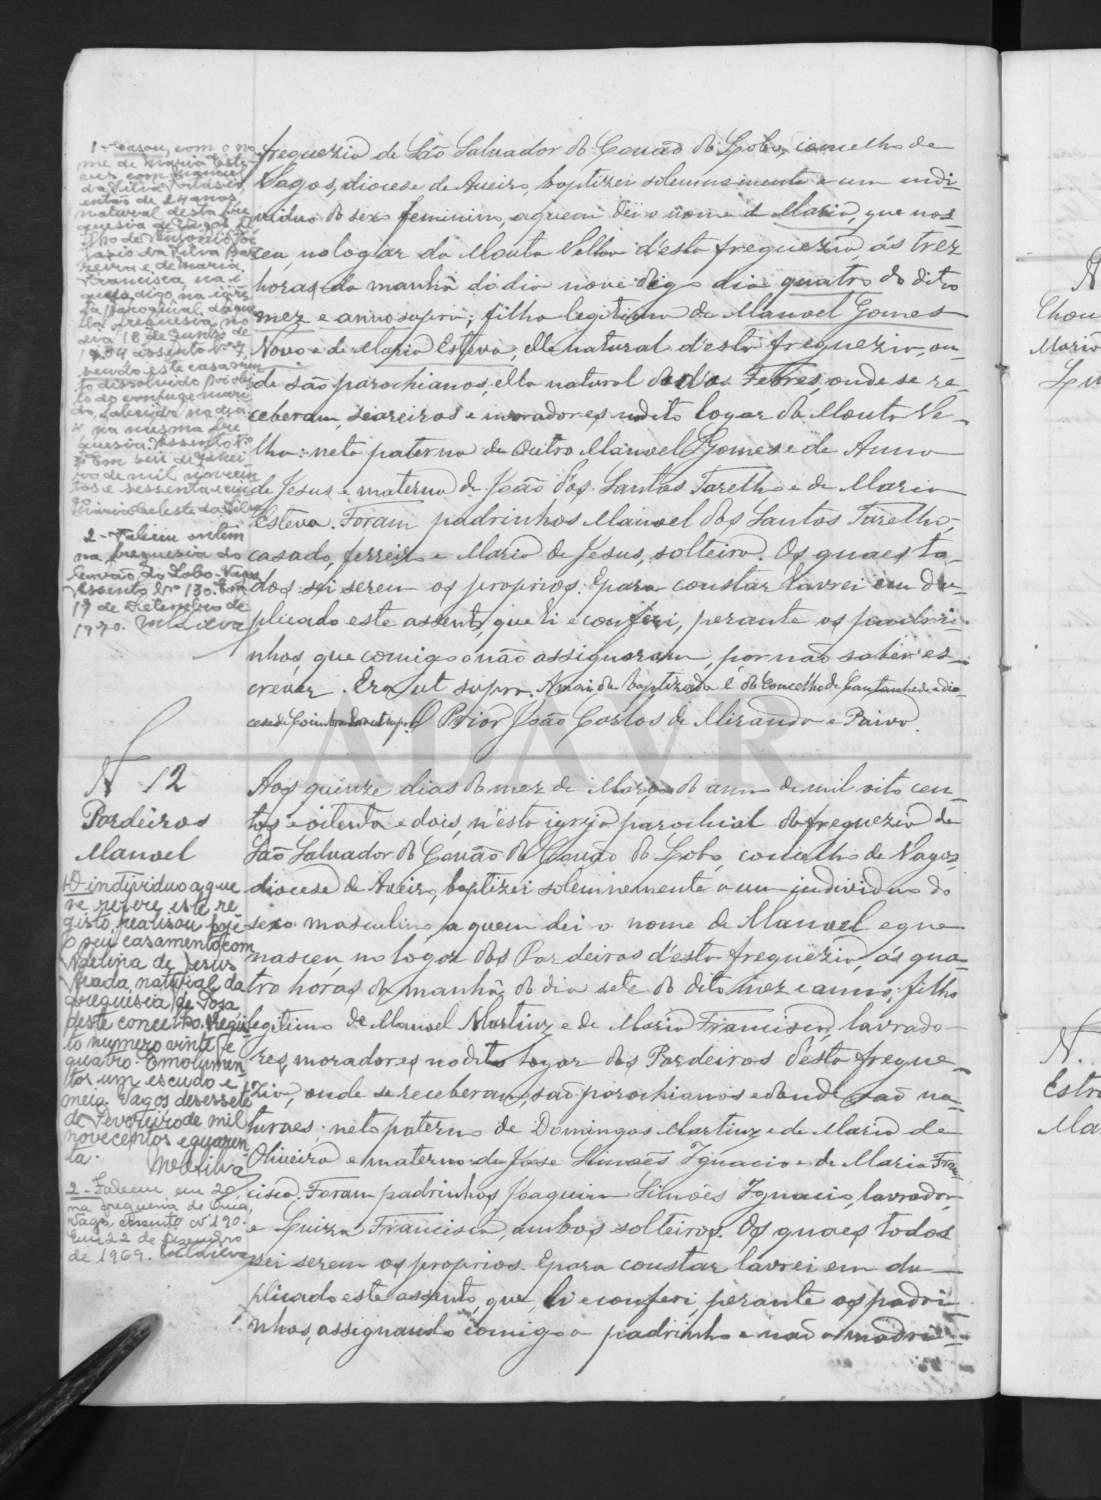 freguezia de São Salvador do Covão do Lobo, concelho de
Vagos, diocese de Aveiro, baptizei solemnemente a um indi-
viduo do sexo feminino, a quem dei o nome de Maria, que nas-
ceu, no logar da Mouta Velha d'esta freguezia, ás trez
horas da manhã do dia nove digo dia quatro do dito
mez e anno supra; filha legitima de Manoel Gomes
Novo e de Maria Esteva, elle natural d'esta freguezia, on-
de são parochianos, ella natural da das Febres, onde se re-
ceberam, seareiros e moradores no dito logar da Mouta Ve-
lha: neta paterna de outro Manoel Gomes e de Anna
de Jesus e materna de João dos Santos Tarelho e de Maria
Esteva. Foram padrinhos Manoel dos Santos Tarelho,
casado, ferreiro e Maria de Jesus, solteira. Os quaes to-
dos sei serem os proprios. E para constar lavrei em du-
plicado este assento, que li e conferi, perante os padri-
nhos, que comigo não assignaram, por não saber es-
crever. Era ut supra. A mai da baptizada é do concelho de Cantanhede e dio-
cese de Coimbra. Era ut supra. O Prior João Carlos de Miranda e Paiva.
1 - Casou, com o no
me de Maria Este
va, com Manuel
da Silva
então de 24 anos,
natural desta fre
guesia de
lho de Antonio
da Silva
e de Maria
Francisca, na i
digo, na igre
ja paroquial
freguesia, no
dia 18 de Junho de
1904 assento nº 7,
sendo este casamen
to dissolvido por obi
to do conjuge mari
do, falecido no dia
na mesma fre
guesia. Assento nº
de mil novecen
tos e sessenta e
2 - Faleceu ontem
na freguesia do
Covão do Lobo - Vagos
Assento Nº 130. Em
19 de Setembro de
1970.
N 12
Pardeiros
Manoel
Aos quinze dias do mez de Março do anno de mil oito cen-
tos e oitenta e dois, n'esta igreja parochial da freguezia de
São Salvador do Covão do Covão do Lobo, concelho de Vagos,
diocese de Aveiro, baptizei solemnemente a um individuo do
sexo masculino, a quem dei o nome de Manoel e que
nasceu, no logar dos Pardeiros d'esta freguezia, ás qua-
tro horas da manhã do dia sete do dito mez e anno; filho
legitimo de Manoel Martinz e de Maria Francisca, lavrado-
res, moradores no dito logar dos Pardeiros d'esta fregue-
zia, onde se receberam, são parochianos e donde são na-
turaes; neto paterno de Domingos Martinz e de Maria de
Oliveira e materno de José Simões Ignacio e de Maria Fran-
cisca. Foram padrinhos, Joaquim Simões Ignacio, lavrador,
e Luiza Francisca, ambos solteiros. Os quaes todos
sei serem os proprios. E para constar lavrei em du-
plicado este assento, que li e conferi, perante os padri-
nhos, assignando comigo o padrinho e não a madri-
1 O individuo a que
se refere este re
gisto, realisou hoje
o seu casamento com
Adelina de Jesus
natural da
freguesia de Sosa
deste concelho. Regis
to numero vinte e
quatro. Emolumen
tos um escudo e
meio. Vagos dezessete
de Fevereiro de mil
novecentos e quaren
ta.
2 - Faleceu em 20,
na freguesia de Ouca,
Vagos, assento nº 190.
Em 22 de Dezembro
de 1969.
N
Chou
Maria
N.
Estr
Ma
ADAVR